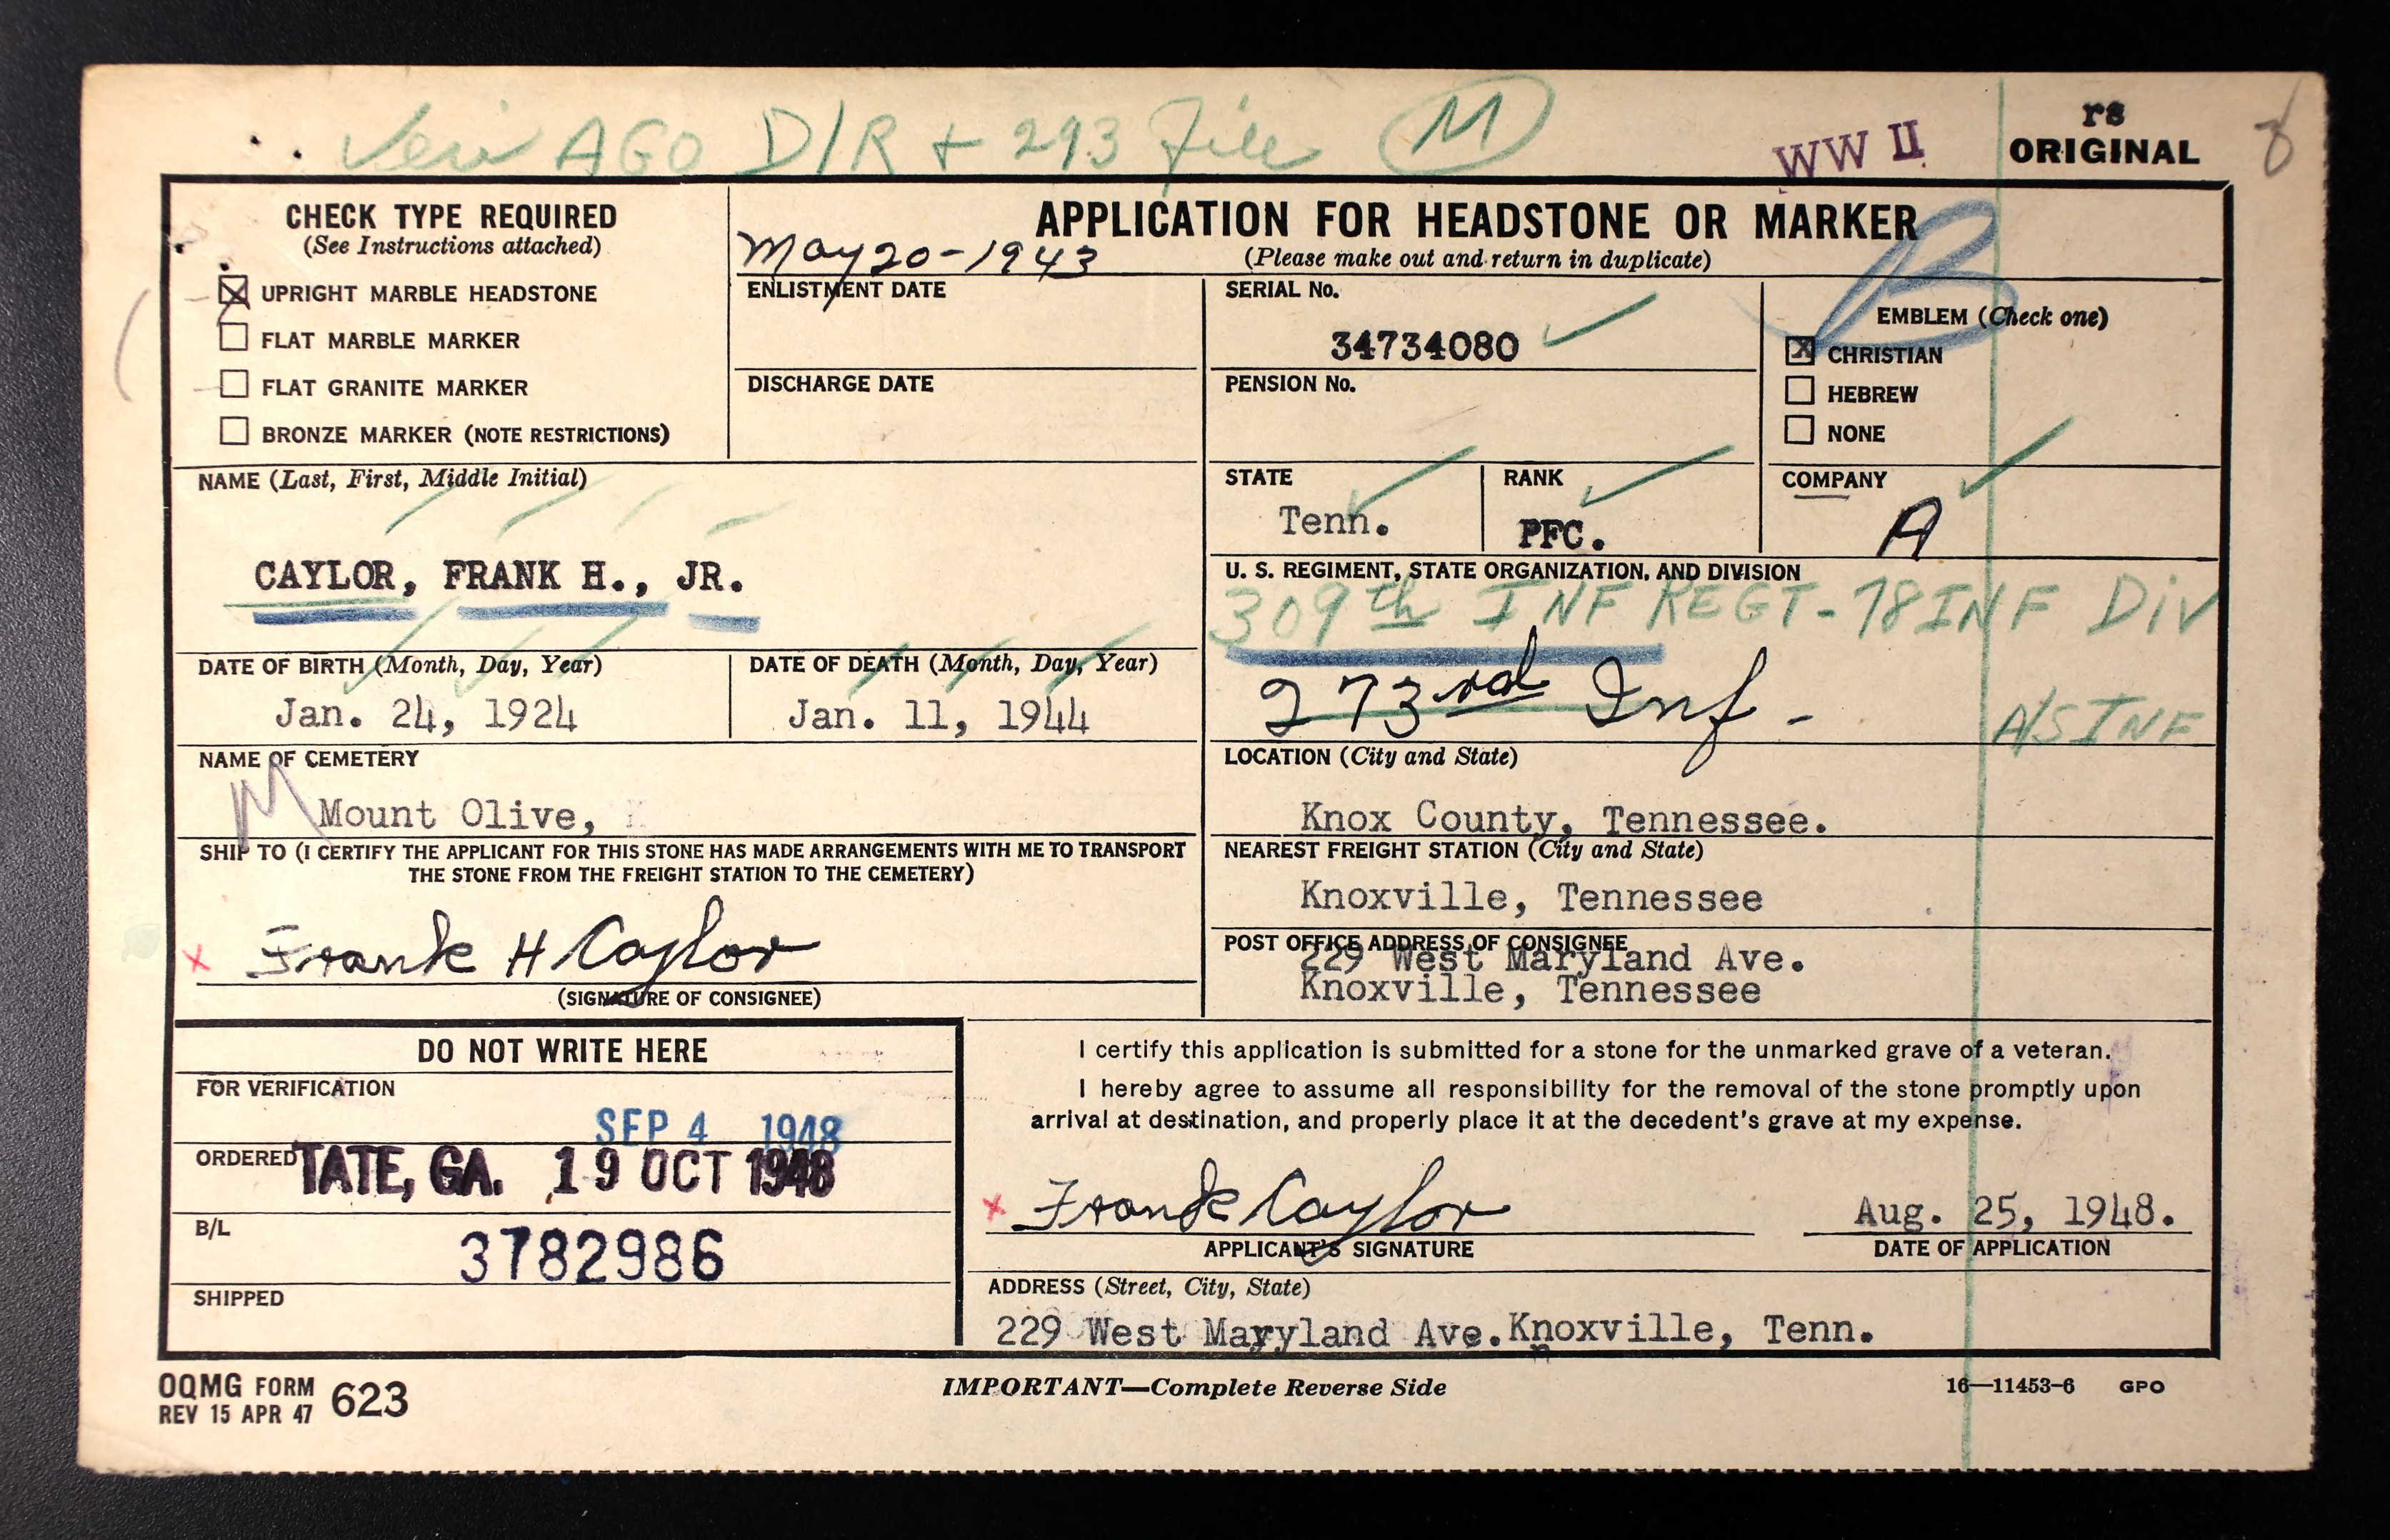 Veri AGO D/R + 293 File M
WW II
rs
ORIGINAL
CHECK TYPE REQUIRED
(See Instructions attached)
X UPRIGHT MARBLE HEADSTONE
FLAT MARBLE MARKER
FLAT GRANITE MARKER
BRONZE MARKER (NOTE RESTRICTIONS)
APPLICATION FOR HEADSTONE OR MARKER
(Please make out and return in duplicate)
May 20-1943
ENLISTMENT DATE
DISCHARGE DATE
SERIAL No.
34734080
PENSION No.
B
EMBLEM (Check one)
X CHRISTIAN
HEBREW
NONE
NAME (Last, First, Middle Initial)
CAYLOR, FRANK H., JR.
STATE
Tenn.
RANK
PFC.
COMPANY
A
U. S. REGIMENT, STATE ORGANIZATION, AND DIVISION
309th INF REGT-78 INF Div
273rd Inf -
A/S INF
DATE OF BIRTH (Month, Day, Year)
Jan. 24, 1924
DATE OF DEATH (Month, Day, Year)
Jan. 11, 1944
NAME OF CEMETERY
M Mount Olive,
LOCATION (City and State)
Knox County, Tennessee.
SHIP TO (I CERTIFY THE APPLICANT FOR THIS STONE HAS MADE ARRANGEMENTS WITH ME TO TRANSPORT
THE STONE FROM THE FREIGHT STATION TO THE CEMETERY)
x Frank H Caylor
(SIGNATURE OF CONSIGNEE)
NEAREST FREIGHT STATION (City and State)
Knoxville, Tennessee
POST OFFICE ADDRESS OF CONSIGNEE
229 West Maryland Ave.
Knoxville, Tennessee
DO NOT WRITE HERE
FOR VERIFICATION
SEP 4 1948
ORDERED TATE, GA. 19 OCT 1948
B/L
3782986
SHIPPED
I certify this application is submitted for a stone for the unmarked grave of a veteran.
I hereby agree to assume all responsibility for the removal of the stone promptly upon
arrival at destination, and properly place it at the decedent's grave at my expense.
x Frank Caylor
APPLICANT'S SIGNATURE
Aug. 25, 1948.
DATE OF APPLICATION
ADDRESS (Street, City, State)
229 West Maryland Ave. Knoxville, Tenn.
OQMG FORM 623
REV 15 APR 47
IMPORTANT—Complete Reverse Side
16—11453-6 GPO